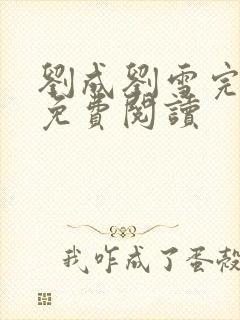 劉成劉雪完
免費閱讀
我咋成了蛋殼